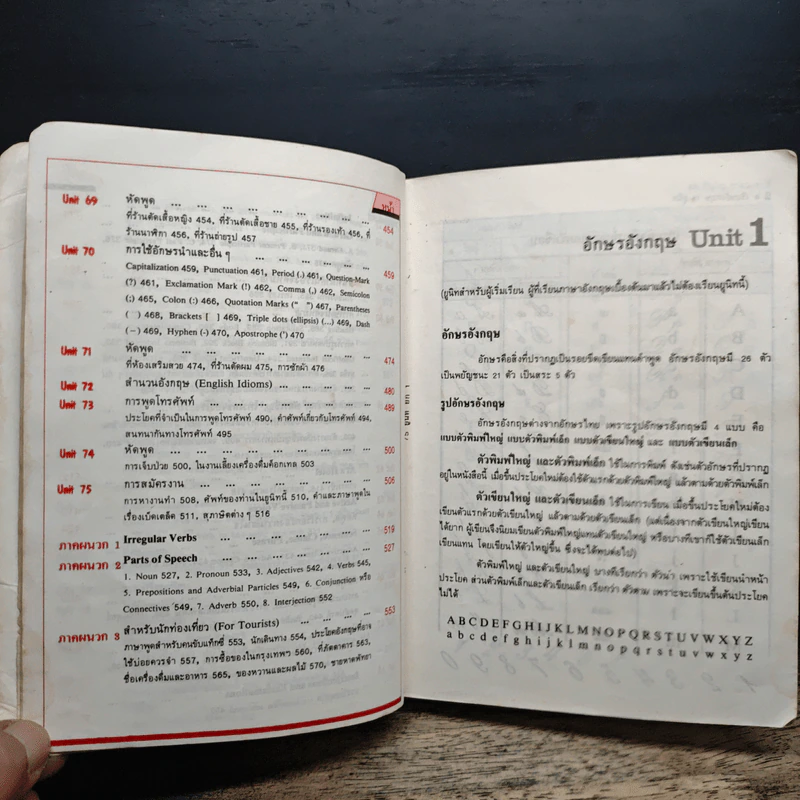 หน้า
Unit 69 หัดพูด ... ... ... ... ... ... ... ... 454
ที่ร้านตัดเสื้อหญิง 454, ที่ร้านตัดเสื้อชาย 455, ที่ร้านรองเท้า 456, ที่
ร้านนาฬิกา 456, ที่ร้านถ่ายรูป 457
Unit 70 การใช้อักษรนำและอื่น ๆ ... ... ... ... ... 459
Capitalization 459, Punctuation 461, Period (.) 461, Question-Mark
(?) 461, Exclamation Mark (!) 462, Comma (,) 462, Semicolon
(;) 465, Colon (:) 466, Quotation Marks (“ ”) 467, Parentheses
( ) 468, Brackets [ ] 469, Triple dots (ellipsis) (...) 469, Dash
(–) 469, Hyphen (-) 470, Apostrophe (') 470
Unit 71 หัดพูด ... ... ... ... ... ... ... ... 474
ที่ห้องเสริมสวย 474, ที่ร้านตัดผม 475, การซักผ้า 476
Unit 72 สำนวนอังกฤษ (English Idioms) ... ... ... ... 480
Unit 73 การพูดโทรศัพท์ ... ... ... ... ... ... 489
ประโยคที่จำเป็นในการพูดโทรศัพท์ 490, คำศัพท์เกี่ยวกับโทรศัพท์ 494,
สนทนากันทางโทรศัพท์ 495
Unit 74 หัดพูด ... ... ... ... ... ... ... ... 500
การเจ็บป่วย 500, ในงานเลี้ยงเครื่องดื่มค็อกเทล 503
Unit 75 การสมัครงาน ... ... ... ... ... ... 506
การหางานทำ 508, ศัพท์ของท่านในยูนิตนี้ 510, คำและภาษาพูดใน
เรื่องเบ็ดเตล็ด 511, สุภาษิตต่าง ๆ 516
ภาคผนวก 1 Irregular Verbs ... ... ... ... ... ... 519
ภาคผนวก 2 Parts of Speech ... ... ... ... ... ... 527
1. Noun 527, 2. Pronoun 533, 3. Adjectives 542, 4. Verbs 545,
5. Prepositions and Adverbial Particles 549, 6. Conjunction หรือ
Connectives 549, 7. Adverb 550, 8. Interjection 552
ภาคผนวก 3 สำหรับนักท่องเที่ยว (For Tourists) ... ... ... ... 553
ภาษาพูดสำหรับคนขับแท็กซี่ 553, นักเดินทาง 554, ประโยคอังกฤษที่อาจ
ใช้บ่อยควรจำ 557, การซื้อของในกรุงเทพฯ 560, ที่ภัตตาคาร 563,
ชื่อเครื่องดื่มและอาหาร 565, ของหวานและผลไม้ 570, ชายหาดพัทยา
อักษรอังกฤษ Unit 1
(ยูนิตสำหรับผู้เริ่มเรียน ผู้ที่เรียนภาษาอังกฤษเบื้องต้นมาแล้วไม่ต้องเรียนยูนิตนี้)
อักษรอังกฤษ
อักษรคือสิ่งที่ปรากฏเป็นรอยขีดเขียนแทนคำพูด อักษรอังกฤษมี 26 ตัว
เป็นพยัญชนะ 21 ตัว เป็นสระ 5 ตัว
รูปอักษรอังกฤษ
อักษรอังกฤษต่างจากอักษรไทย เพราะรูปอักษรอังกฤษมี 4 แบบ คือ
แบบตัวพิมพ์ใหญ่ แบบตัวพิมพ์เล็ก แบบตัวเขียนใหญ่ และ แบบตัวเขียนเล็ก
ตัวพิมพ์ใหญ่ และตัวพิมพ์เล็ก ใช้ในการพิมพ์ ดังเช่นตัวอักษรที่ปรากฏ
อยู่ในหนังสือนี้ เมื่อขึ้นประโยคใหม่ต้องใช้ตัวแรกด้วยตัวพิมพ์ใหญ่ แล้วตามด้วยตัวพิมพ์เล็ก
ตัวเขียนใหญ่ และตัวเขียนเล็ก ใช้ในการเขียน เมื่อขึ้นประโยคใหม่ต้อง
เขียนตัวแรกด้วยตัวเขียนใหญ่ แล้วตามด้วยตัวเขียนเล็ก (แต่เนื่องจากตัวเขียนใหญ่เขียน
ได้ยาก ผู้เขียนจึงนิยมเขียนตัวพิมพ์ใหญ่แทนตัวเขียนใหญ่ หรือบางทีเขาก็ใช้ตัวเขียนเล็ก
เขียนแทน โดยเขียนให้ตัวใหญ่ขึ้น ซึ่งจะได้พบต่อไป)
ตัวพิมพ์ใหญ่ และตัวเขียนใหญ่ บางทีเรียกว่า ตัวนำ เพราะใช้เขียนนำหน้า
ประโยค ส่วนตัวพิมพ์เล็กและตัวเขียนเล็ก เรียกว่า ตัวตาม เพราะจะเขียนขึ้นต้นประโยค
ไม่ได้
A B C D E F G H I J K L M N O P Q R S T U V W X Y Z
a b c d e f g h i j k l m n o p q r s t u v w x y z